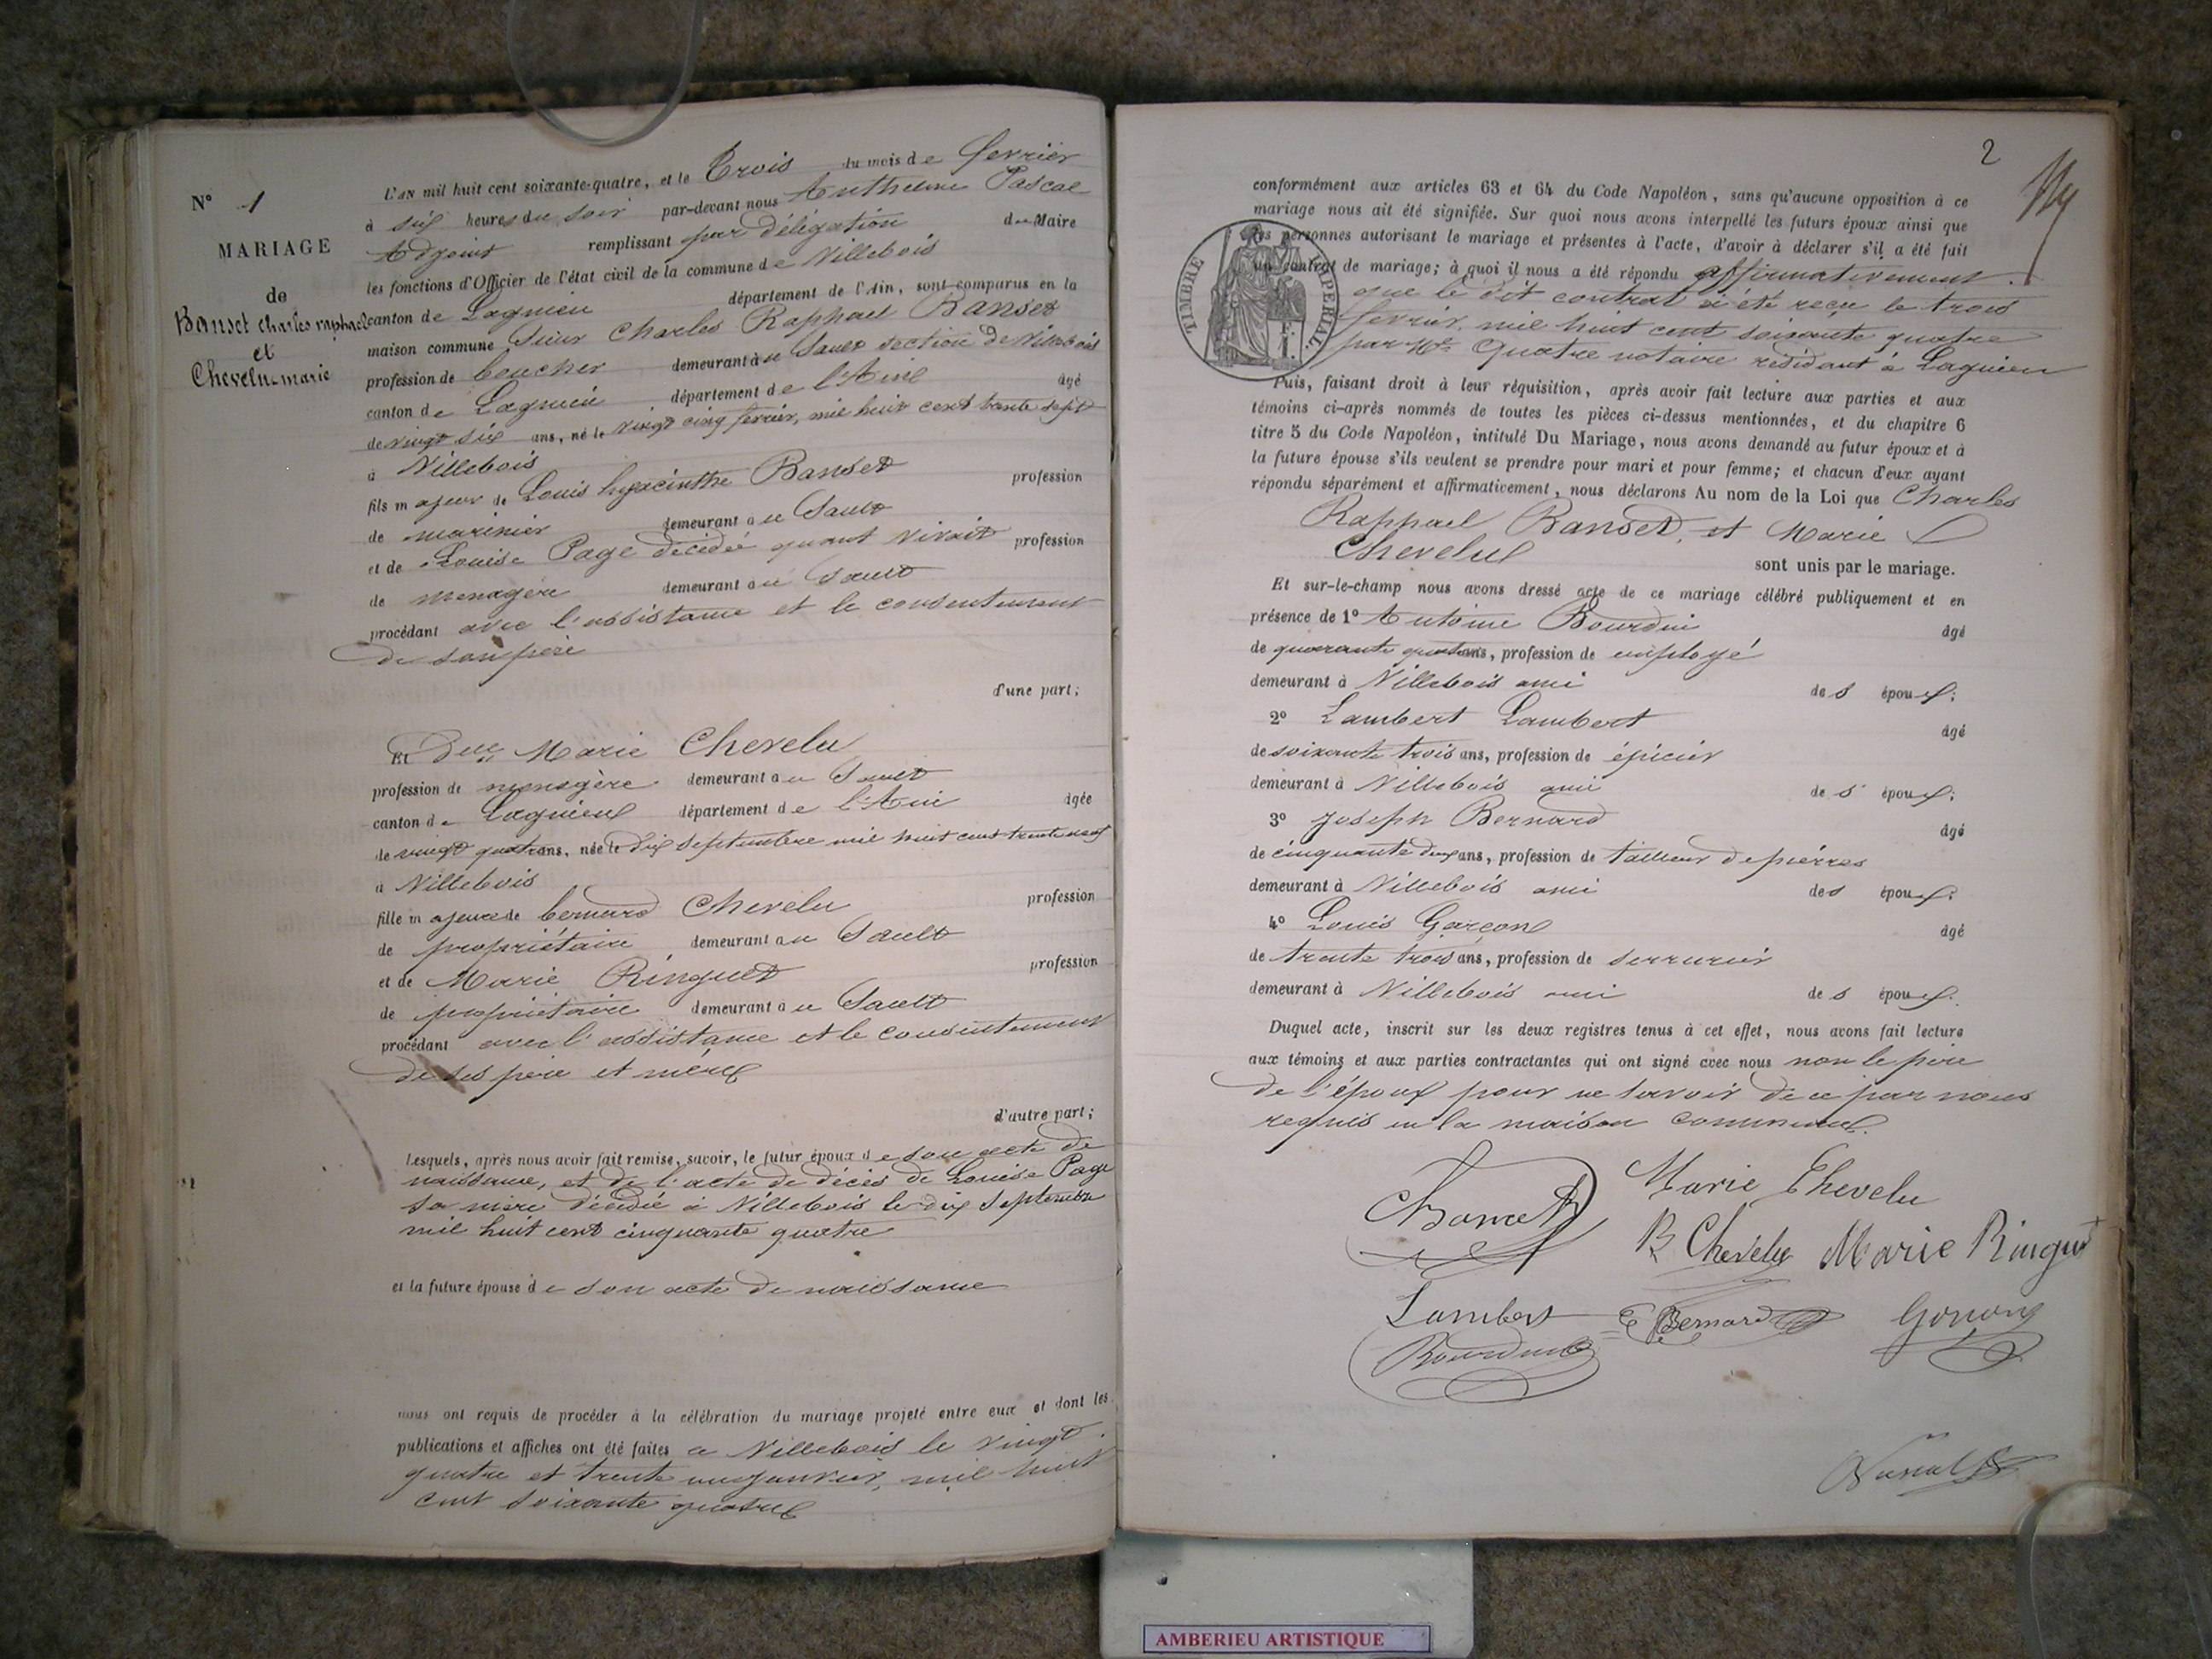 N° 1
MARIAGE
de
Banset Charles raphael
et
Chevelu marie
L'AN mil huit cent soixante-quatre, et le Trois du mois de fevrier
à six heures du soir par-devant nous Anthelme Pascal
Adjoint remplissant par délégation du Maire
les fonctions d'Officier de l'état civil de la commune de Villebois
canton de Lagnieu département de l'Ain, sont comparus en la
maison commune Sieur Charles Raphael Banset
profession de boucher demeurant au Sault section de Villebois
canton de Lagnieu département de l'Ain âgé
de vingt six ans, né le vingt cinq fevrier, mil huit cent trente sept
à Villebois
fils majeur de Louis hyacinthe Banset profession
de marinier demeurant au Sault
et de Louise Page décédée quant vivait profession
de menagère demeurant au Sault
procédant avec l'assistance et le consentement
de son père
d'une part;
Et Delle Marie Chevelu
profession de menagère demeurant au Sault
canton de Lagnieu département de l'Ain âgée
de vingt quatre ans, née le dix septembre mil huit cent trente neuf
à Villebois
fille majeure de bernard Chevelu profession
de propriétaire demeurant au Sault
et de Marie Ringuet profession
de propriétaire demeurant au Sault
procédant avec l'assistance et le consentement
de ses père et mère
d'autre part;
Lesquels, après nous avoir fait remise, savoir, le futur époux de son acte de
naissance, et de l'acte de décès de Louise Page
sa mère décédée à Villebois le dix septembre
mil huit cent cinquante quatre
et la future épouse de son acte de naissance
nous ont requis de procéder à la célébration du mariage projeté entre eux et dont les
publications et affiches ont été faites a Villebois le vingt
quatre et trente un janvier, mil huit
cent soixante quatre
2
conformément aux articles 63 et 64 du Code Napoléon, sans qu'aucune opposition à ce
mariage nous ait été signifiée. Sur quoi nous avons interpellé les futurs époux ainsi que
les personnes autorisant le mariage et présentes à l'acte, d'avoir à déclarer s'il a été fait
un contrat de mariage; à quoi il nous a été répondu affirmativement.
que le dit contrat a été reçu le trois
fevrier, mil huit cent soixante quatre
par Me Quatre notaire residant à Lagnieu
TIMBRE IMPERIAL
Puis, faisant droit à leur réquisition, après avoir fait lecture aux parties et aux
témoins ci-après nommés de toutes les pièces ci-dessus mentionnées, et du chapitre 6
titre 5 du Code Napoléon, intitulé Du Mariage, nous avons demandé au futur époux et à
la future épouse s'ils veulent se prendre pour mari et pour femme; et chacun d'eux ayant
répondu séparément et affirmativement, nous déclarons Au nom de la Loi que Charles
Raphael Banset, et Marie
Chevelu
sont unis par le mariage.
Et sur-le-champ nous avons dressé acte de ce mariage célébré publiquement et en
présence de 1° Antoine Bourdin âgé
de quarante quatre ans, profession de employé
demeurant à Villebois ami des époux;
2° Lambert Lambert âgé
de soixante trois ans, profession de épicier
demeurant à Villebois ami des époux;
3° Joseph Bernard âgé
de cinquante deux ans, profession de tailleur de pierres
demeurant à Villebois ami des époux;
4° Louis Garçon âgé
de trente trois ans, profession de serrurier
demeurant à Villebois ami des époux.
Duquel acte, inscrit sur les deux registres tenus à cet effet, nous avons fait lecture
aux témoins et aux parties contractantes qui ont signé avec nous non le père
de l'époux pour ne savoir de ce par nous
requis en la maison commune.
Marie Chevelu
B Chevelu Marie Ringuet
Lambert Bernard
Bourdin
AMBERIEU ARTISTIQUE